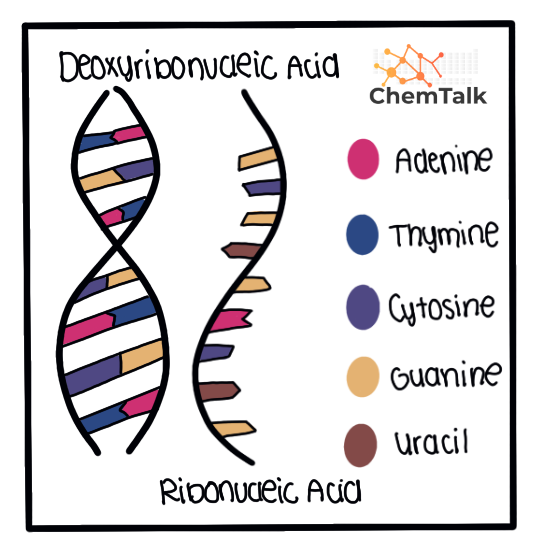 Deoxyribonucleic Acid
ChemTalk
Adenine
Thymine
Cytosine
Guanine
Uracil
Ribonucleic Acid